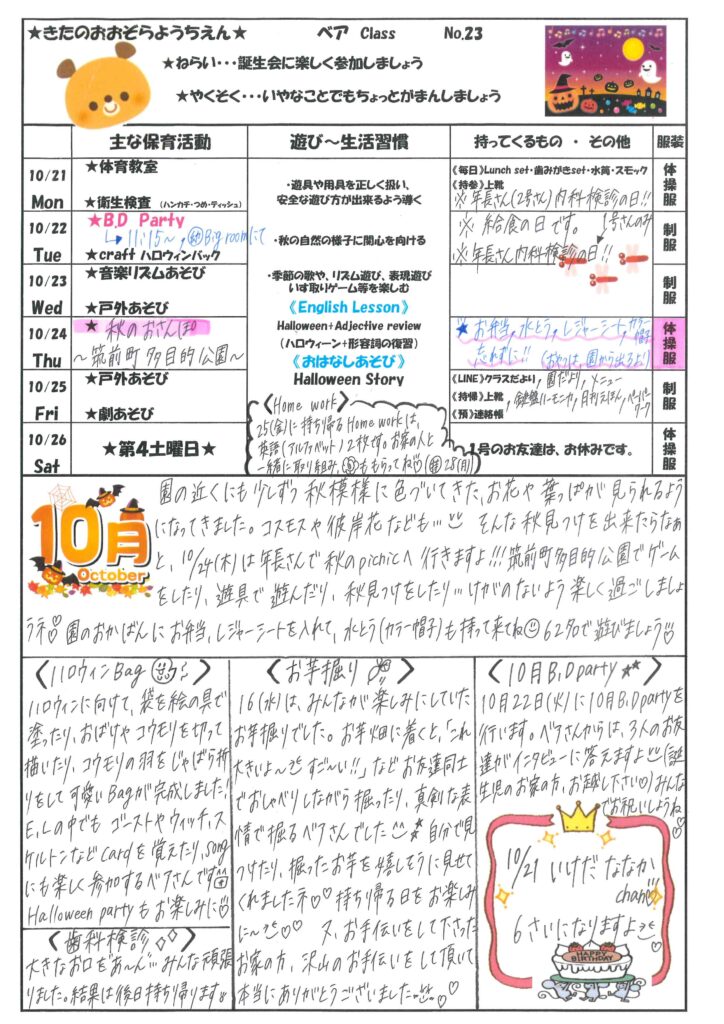 ★きたのおおぞらようちえん★ ベア Class No.23
★ねらい・・・誕生会に楽しく参加しましょう
★やくそく・・・いやなことでもちょっとがまんしましょう
主な保育活動 遊び~生活習慣 持ってくるもの ・ その他 服装
10/21
Mon
★体育教室
★衛生検査 (ハンカチ・つめ・ティッシュ)
・遊具や用具を正しく扱い、
安全な遊び方が出来るよう導く
《毎日》Lunch set・歯みがきset・水筒・スモック
《持参》上靴
※年長さん(2号さん)内科検診の日!!
体操服
10/22
Tue
★B,D Party
↳11:15~、㊙Big roomにて
★craft ハロウィンバック
・秋の自然の様子に関心を向ける
※ 給食の日です。 1号さんのみ
※年長さん内科検診の日!!
制服
10/23
Wed
★音楽リズムあそび
★戸外あそび
・季節の歌や、リズム遊び、表現遊び
いす取りゲーム等を楽しむ
《English Lesson》
制服
10/24
Thu
★ 秋のおさんぽ
~筑前町多目的公園~
Halloween+Adjective review
(ハロウィーン+形容詞の復習)
《おはなしあそび》
★お弁当、水とう、レジャーシート、カラー帽子
忘れずに!! (おやつは、園から出るよ)
体操服
10/25
Fri
★戸外あそび
★劇あそび
Halloween Story
《LINE》クラスだより、園だより、メニュー
《持帰》上靴、鍵盤ハーモニカ、月刊えほん、ペーパーワーク
《預》連絡帳
制服
10/26
Sat
★第4土曜日★
〈Home work〉
25(金)に持ち帰るHome workは、
英語(アルファベット)2枚です。お家の人と
一緒に取り組み、もらってね♡ (28(月)
1号のお友達は、お休みです。
体操服
10月
October
園の近くにも少しずつ秋模様に色づいてきた、お花や葉っぱが見られるよう
になってきました。コスモスや彼岸花なども… そんな秋見つけを出来たらなぁ
と、10/24(木)は年長さんで秋のpicnicへ行きますよ!!!筑前町多目的公園でゲーム
をしたり、遊具で遊んだり、秋見つけをしたり…けがのないよう楽しく過ごしましょ
うネ♡園のおかばんにお弁当、レジャーシートを入れて、水とう(カラー帽子)も持って来てね 62名で遊びましょう♡
〈ハロウィンBag〉
ハロウィンに向けて、袋を絵の具で
塗ったり、おばけやコウモリを切って
描いたり、コウモリの羽をじゃばら折
りをして可愛いBagが完成しました!
E,Lの中でも ゴーストやウィッチ、ス
ケルトンなどcardを覚えたり、song
にも楽しく参加するベアさんです
Halloween partyもお楽しみに♡
〈歯科検診〉
大きなお口を“あーん”…みんな頑張
りました。結果は後日持ち帰ります。
〈お芋掘り〉
16(水)は、みんなが楽しみにしていた
お芋掘りでした。お芋畑に着くと、「これ
大きいよ~ すご~い!!」などお友達同士
でおしゃべりしながら掘ったり、真剣な表
情で掘るベアさんでした 自分で見
つけたり、掘ったお芋を嬉しそうに見せて
くれましたネ♡♡持ち帰る日をお楽しみ
に~♡ 又、お手伝いをして下さった
お家の方、沢山のお手伝いをして頂いて
本当にありがとうございました。♡
〈10月B,Dparty★★〉
10月22日(火)に10月B,Dpartyを
行います。ベアさんからは、3人のお友
達がインタビューに答えますよ (誕
生児のお家の方、お越し下さい♡)みんな
でお祝いしようね♡
10/21 いけだ ななか
chan♡
6さいになりますよ♡
HAPPY
BIRTHDAY